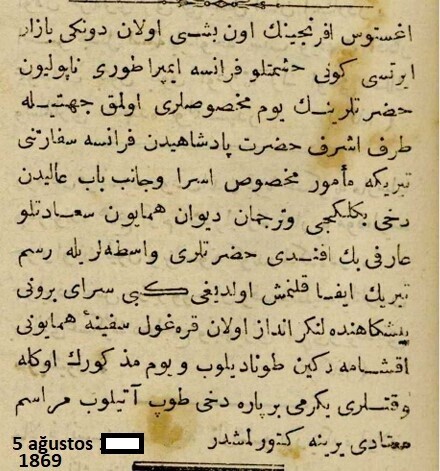 اغستوس افرنجينك اون بشى اولان دونكى بازار
ايرتسى كونى حشمتلو فرانسه ايمپراطورى ناپوليون
حضرتلرينك يوم مخصوصلرى اولمق جهتيله
طرف اشرف حضرت پادشاهيدن فرانسه سفارتنى
تبريكه مأمور مخصوص اسرا وجانب باب عاليدن
دخى بكلكجى وترجمان ديوان همايون سعادتلو
عارفى بك افندى حضرتلرى واسطه لريله رسم
تبريك ايفا قلنمش اولديغى كبى سراى برونى
پيشكاهنده لنكرانداز اولان قره غول سفينۀ همايونى
اقشامه دكين طوناديلوب و يوم مذكورك اوكله
وقتلرى يكرمى بر پاره دخى طوپ آتيلوب مراسم
معتادى يرينه كتورلمشدر
5 ağustos
1869